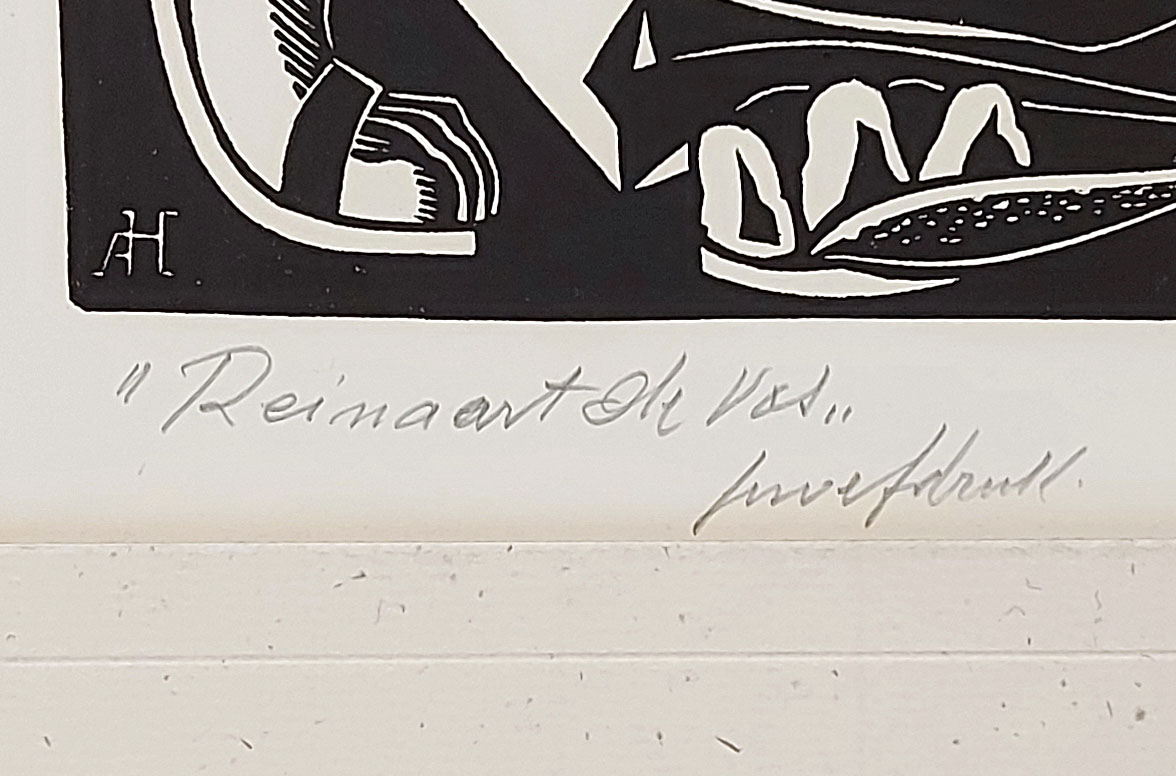 AH
"Reinaart de Vos„
proefdruk.